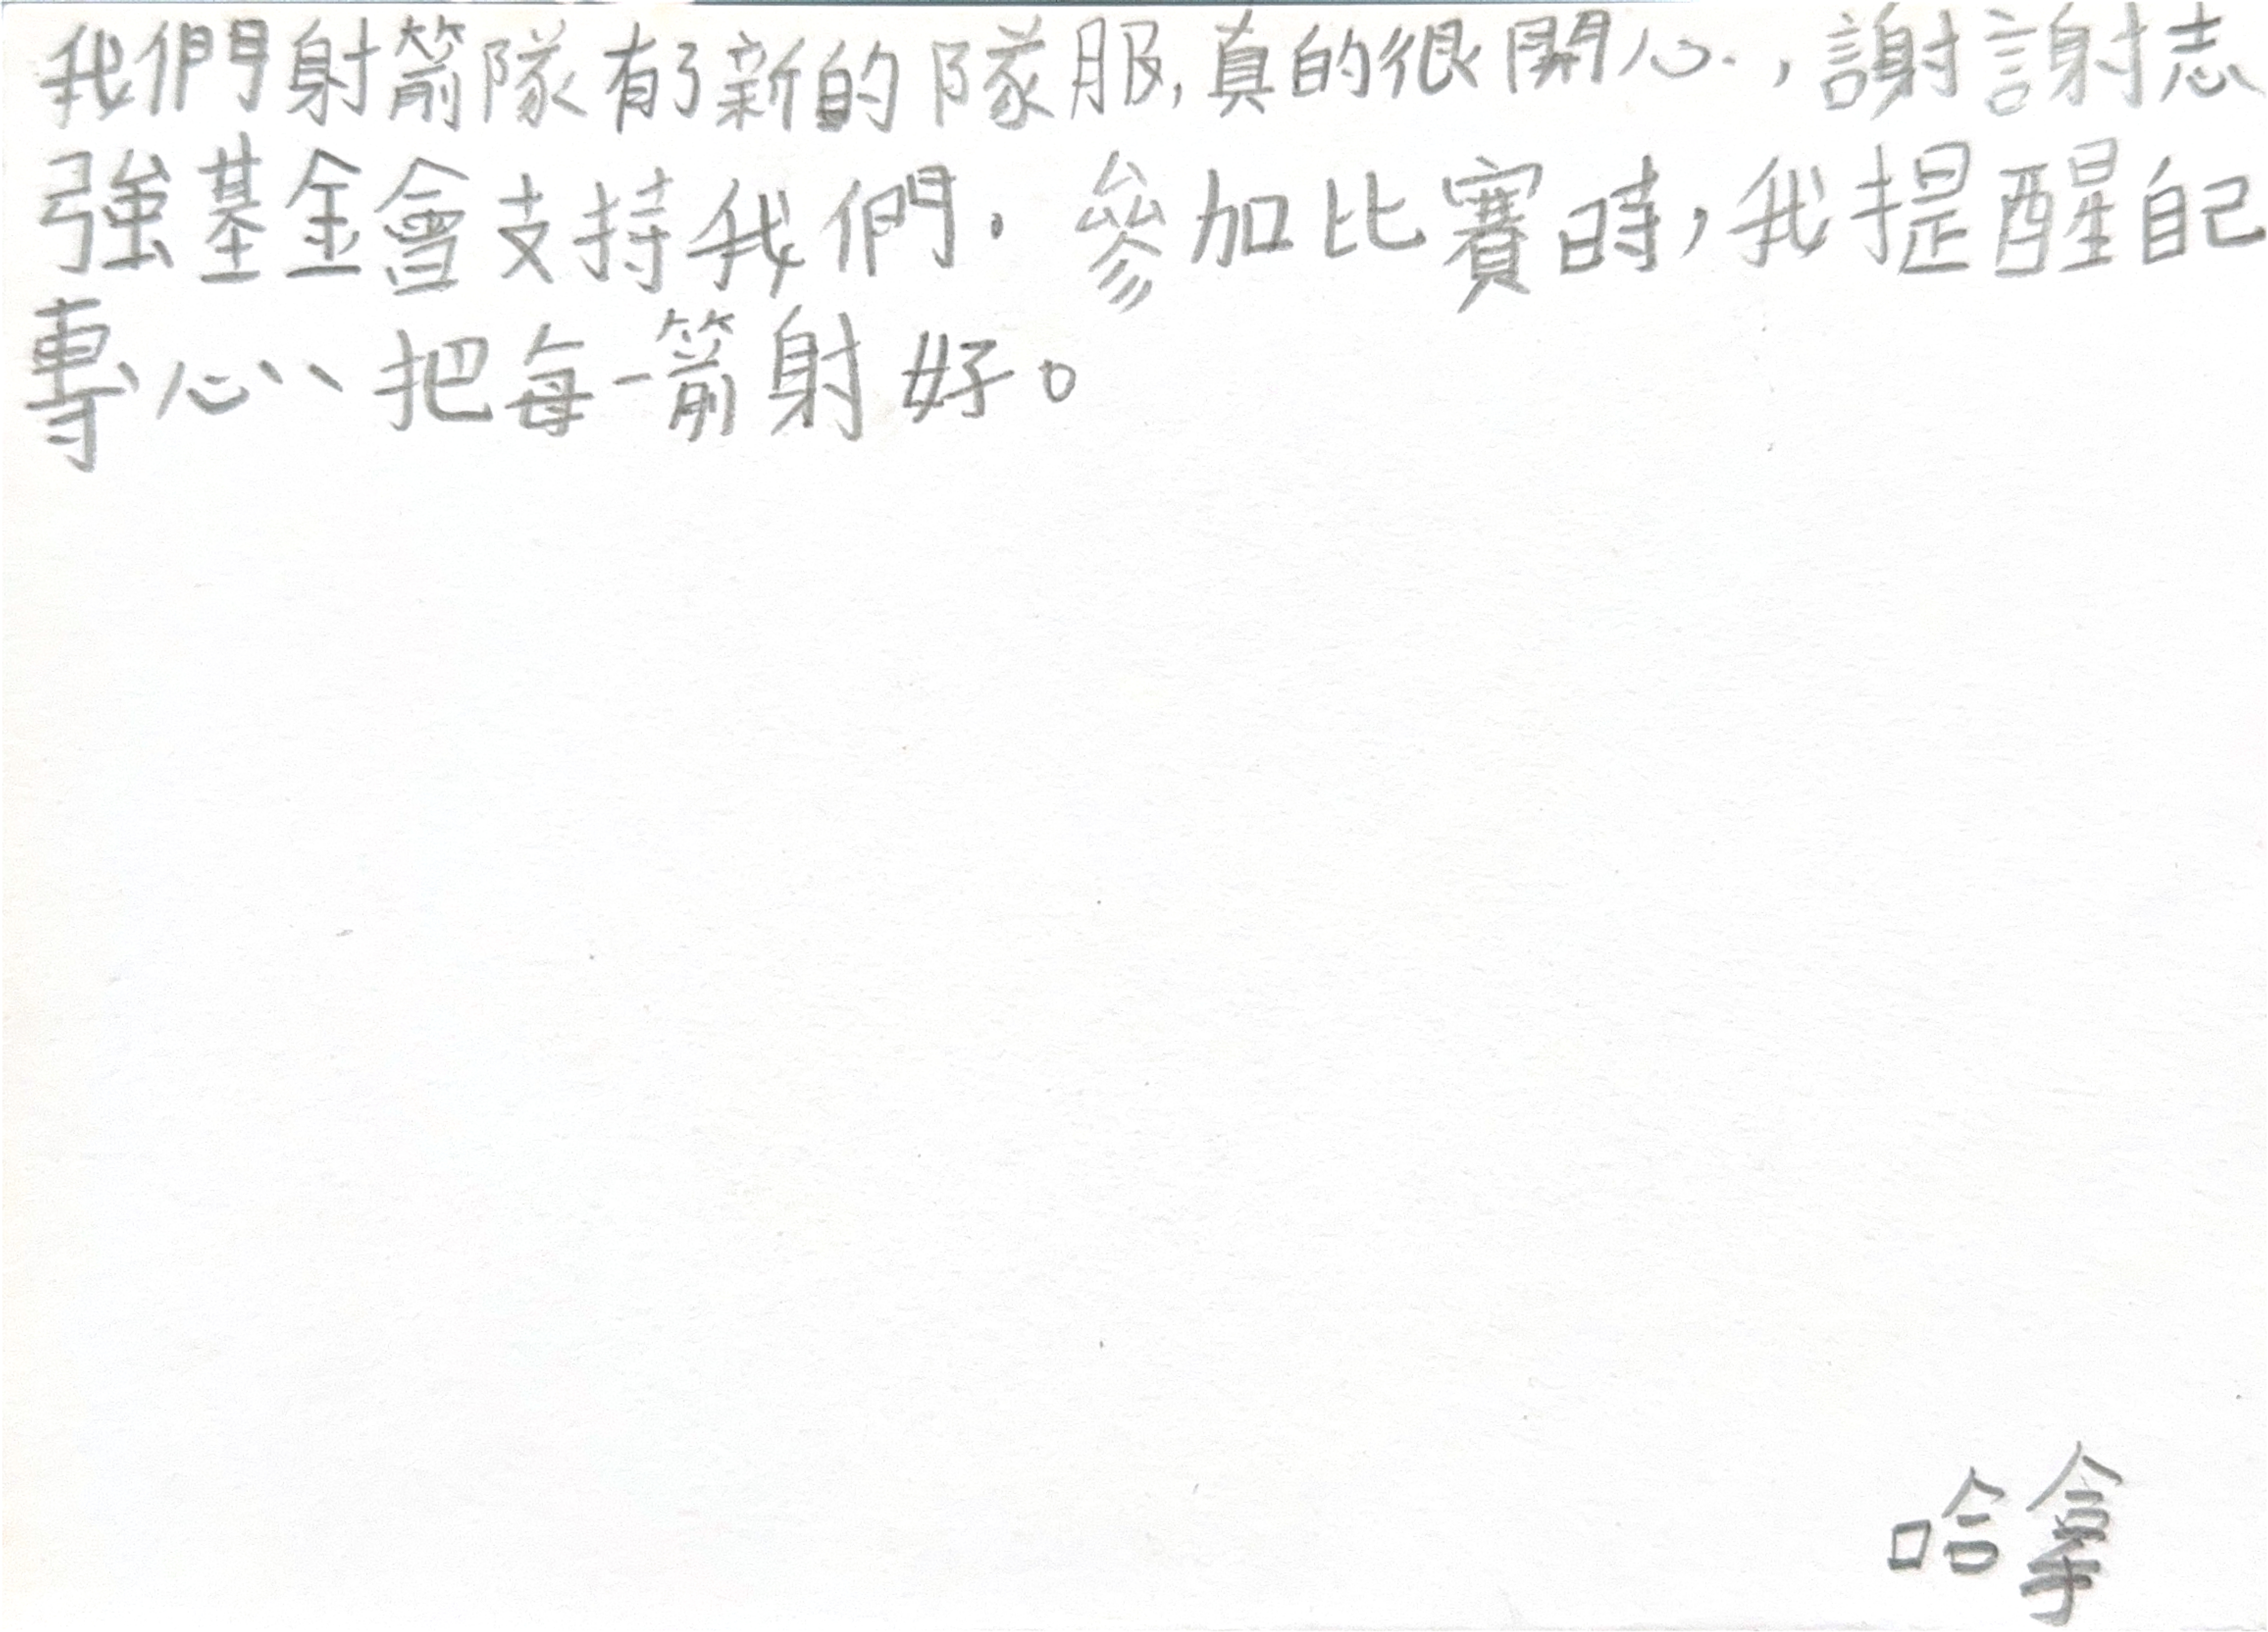 我們射箭隊有了新的隊服,真的很開心.,謝謝志
強基金會支持我們.參加比賽時,我提醒自己
專心、把每一箭射好。
哈拿